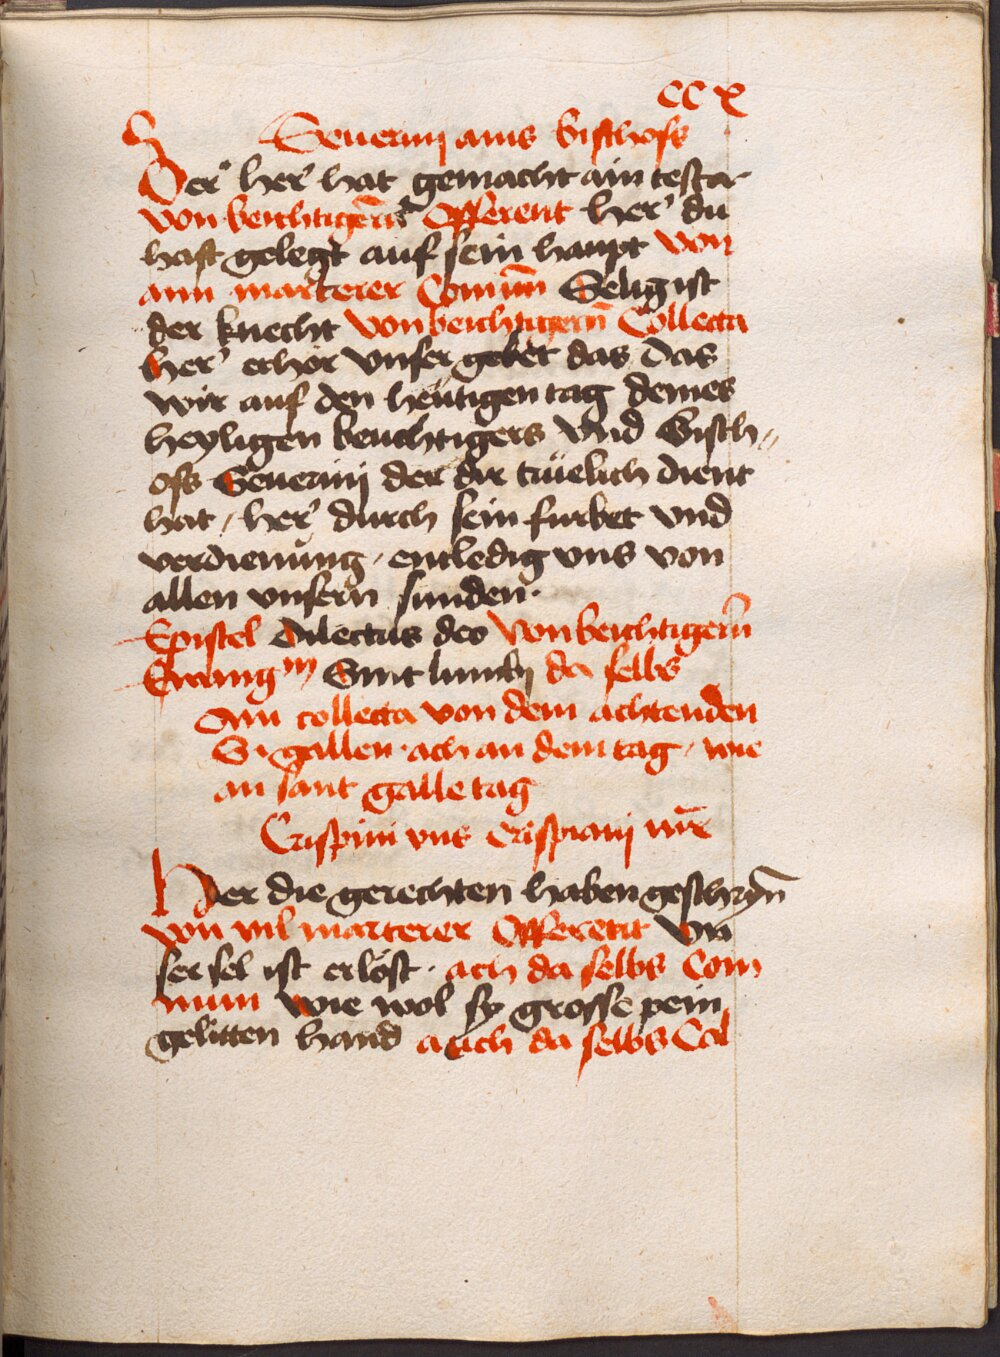 CCX
Seuerinj ains bischofs
Der her hat gemacht ain testa
von beichtigern Offerent her du
hast gelegt auf sein haupt von
aim marterer Comun Selig ist
der knecht von beichtigern Collecta
her erhör vnser gebet das das
wir auf den heütigen tag deines
heyligen beuchtigers vnd Bisch〃
ofs Seuerinj der dir trüelich dient
hat / her durch sein furbet vnd
verdienung / entledig vns von
allen vnsern sunden ·
Epistel Dilectus deo von beichtigern
Ewangm Sint da selbs
Ain collecta von dem achtenden
S · gallen · ach an dem tag / wie
an sant galle tag
Crispini vns Crispianj mre
Her die gerechten haben geschryn
von vil marterer Offeretit vn
ser sel ist erlöst · ach da selbs Com
mun wie wol sy grosse pein
gelitten hand auch da selbs Col